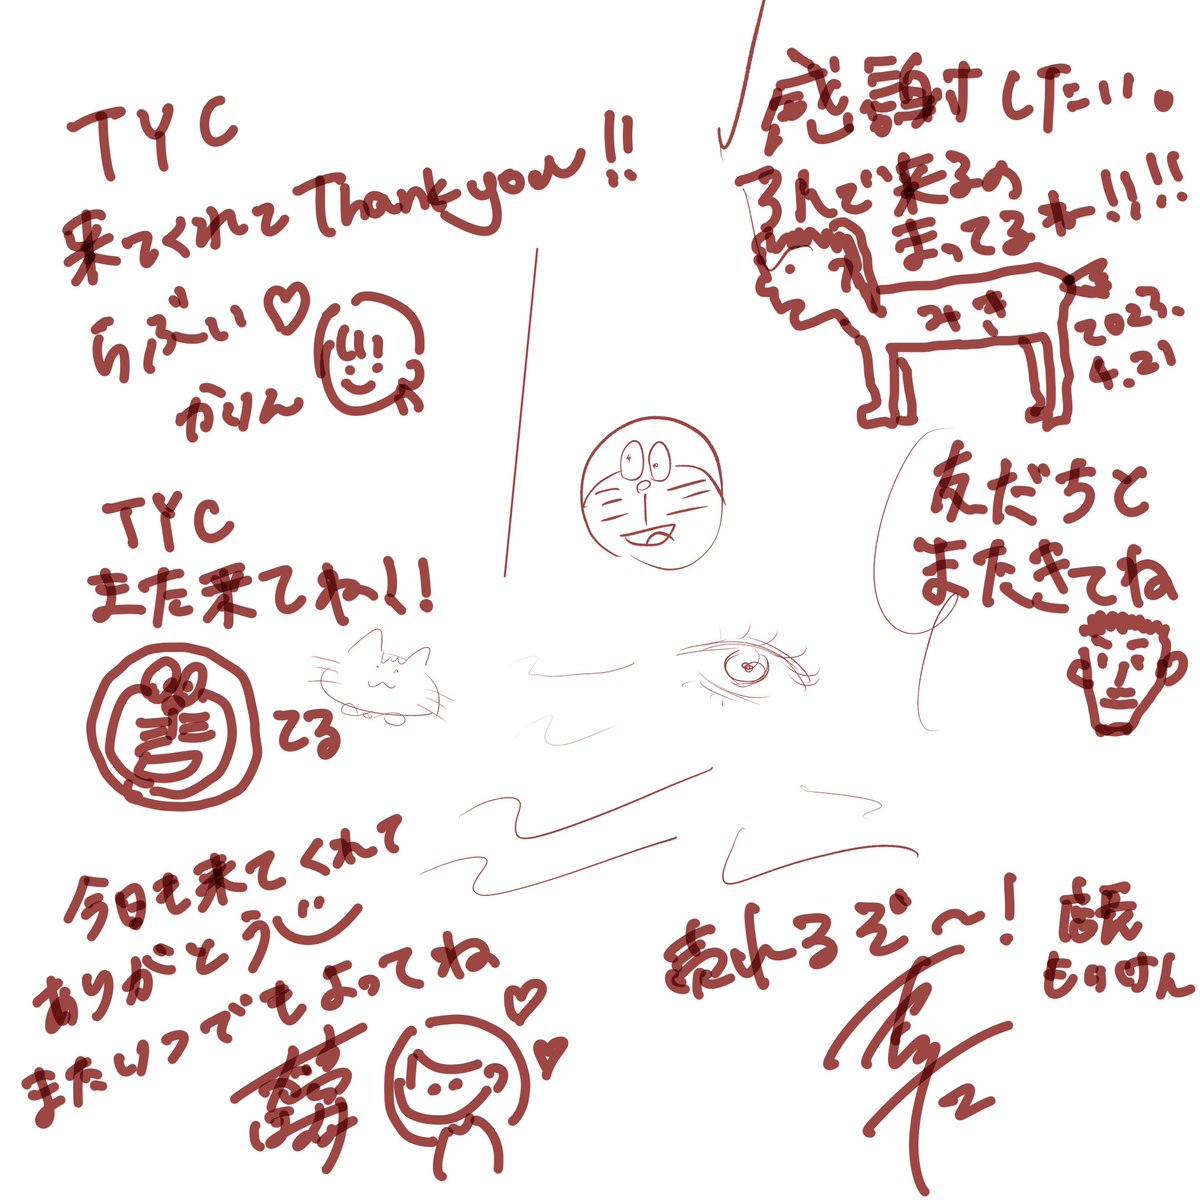 TYC
来てくれてThank you!!
らぶい♡
かりん
感謝すしたい。
るんで来るの
まってるね!!!!
みき
2023.
4.21
TYC
また来てね!!
てる
友だちと
またきてね
今日も来てくれて
ありがとう
またいつでもよってね
売れるぞ〜!
もりけん